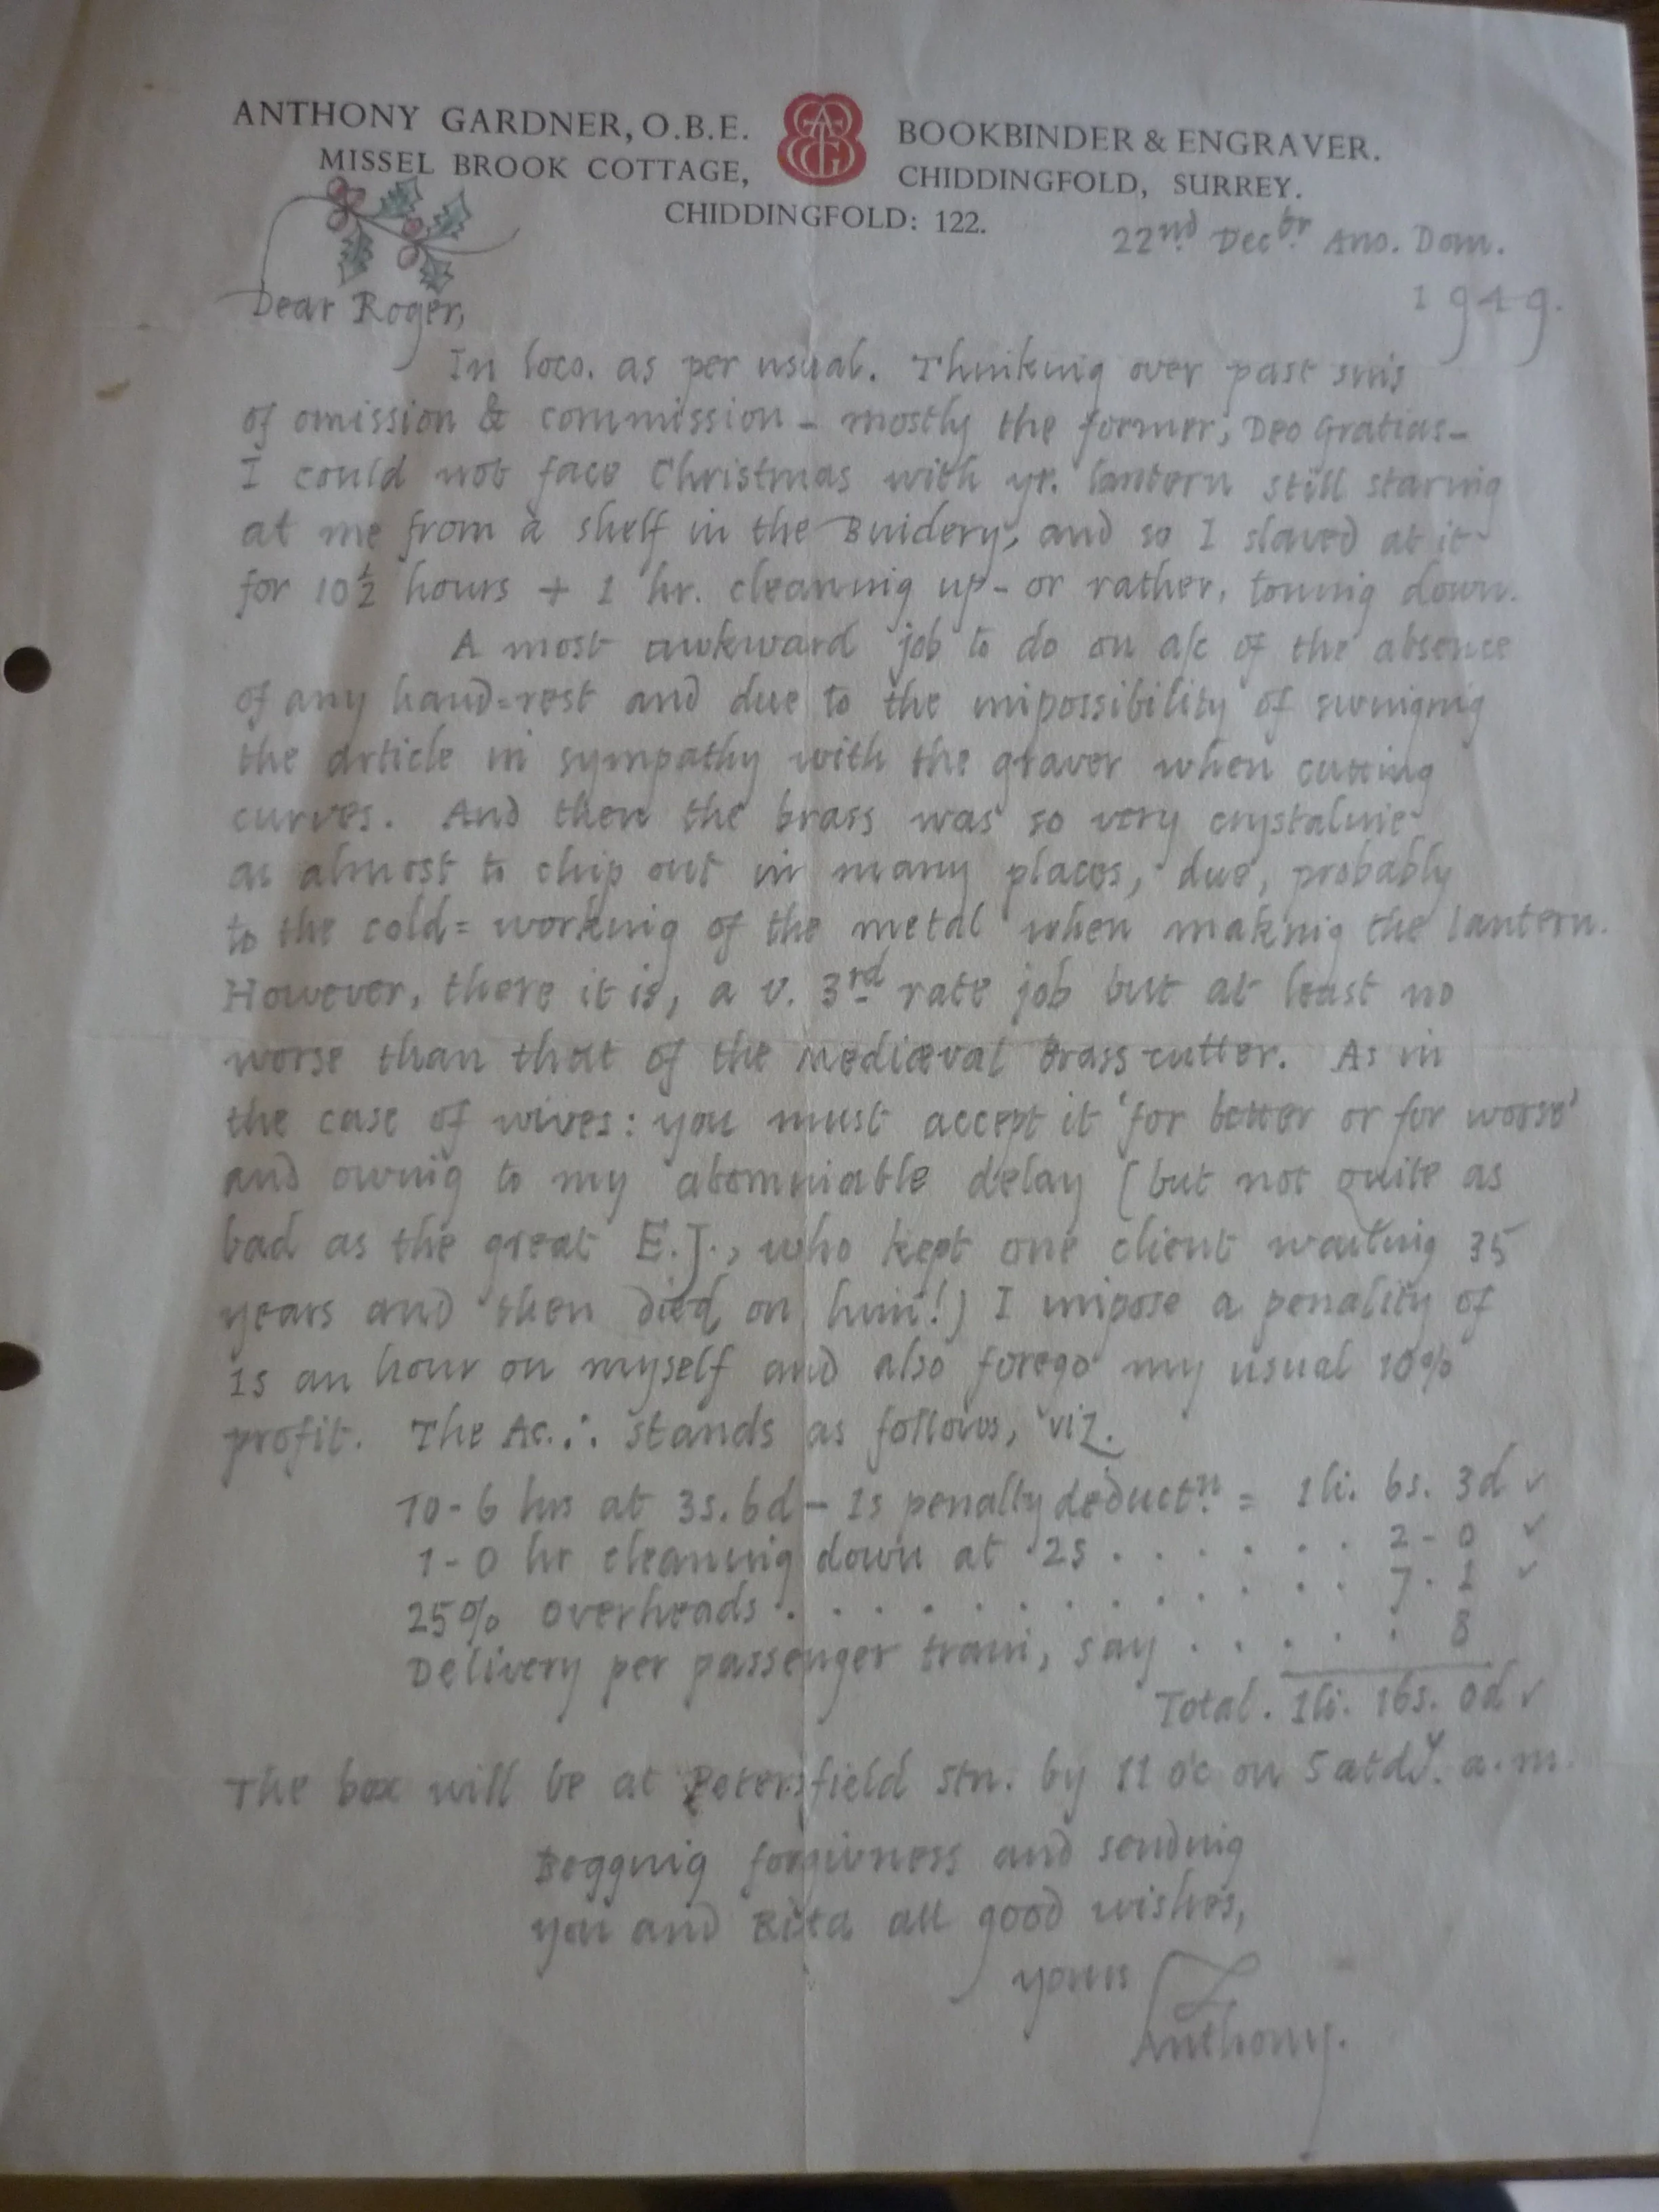 ANTHONY GARDNER, O.B.E. BOOKBINDER & ENGRAVER.
MISSEL BROOK COTTAGE, CHIDDINGFOLD, SURREY.
CHIDDINGFOLD: 122.
22nd Decbr Ano. Dom.
1949.
Dear Roger,
In loco. as per usual. Thinking over past sins
of omission & commission - mostly the former, Deo Gratias -
I could not face Christmas with yr. lantern still staring
at me from a shelf in the Bindery, and so I slaved at it
for 10½ hours + 1 hr. cleaning up - or rather, toning down.
A most awkward job to do on a/c of the absence
of any hand=rest and due to the impossibility of swinging
the article in sympathy with the graver when cutting
curves. And then the brass was so very crystaline
as almost to chip out in many places, due, probably
to the cold=working of the metal when making the lantern.
However, there it is, a v. 3rd rate job but at least no
worse than that of the Mediæval Brass-cutter. As in
the case of wives: you must accept it 'for better or for worse'
and owing to my abominable delay (but not quite as
bad as the great E.J., who kept one client waiting 35
years and then died on him!) I impose a penality of
1s an hour on myself and also forego my usual 10%
profit. The Ac. ∴ stands as follows, viz.
10-6 hrs at 3s. 6d - 1s penalty deductn. = 1li. 6s. 3d ✓
1-0 hr cleaning down at 2s . . . . . . 2-0 ✓
25% overheads . . . . . . . . . . . . 7.1 ✓
Delivery per passenger train, say . . . . . 8
Total. 1li. 16s. 0d ✓
The box will be at Petersfield Stn. by 11 oc on Satdy. a.m.
Begging forgivness and sending
you and all good wishes,
yours
Anthony.